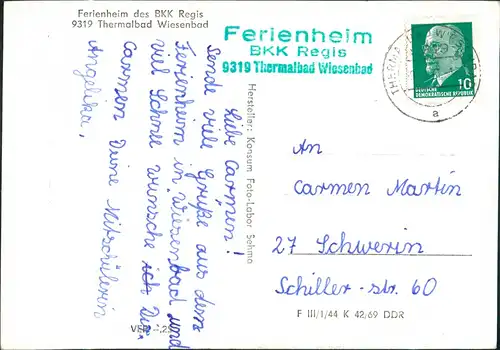 Ferienheim des BKK Regis
9319 Thermalbad Wiesenbad
Ferienheim
BKK Regis
9319 Thermalbad Wiesenbad
10
DEUTSCHE
DEMOKRATISCHE REPUBLIK
a
Liebe Carmen!
Sende viele Grüße aus dem
Ferienheim in Wiesenbad und
viel Sonne wünsche ich Dir,
Carmen Deine Mitschülerin
Angelika.
Hersteller: Konsum Foto-Labor Sehma
An
Carmen Martin
27 Schwerin
Schiller-str. 60
F III/1/44 K 42/69 DDR